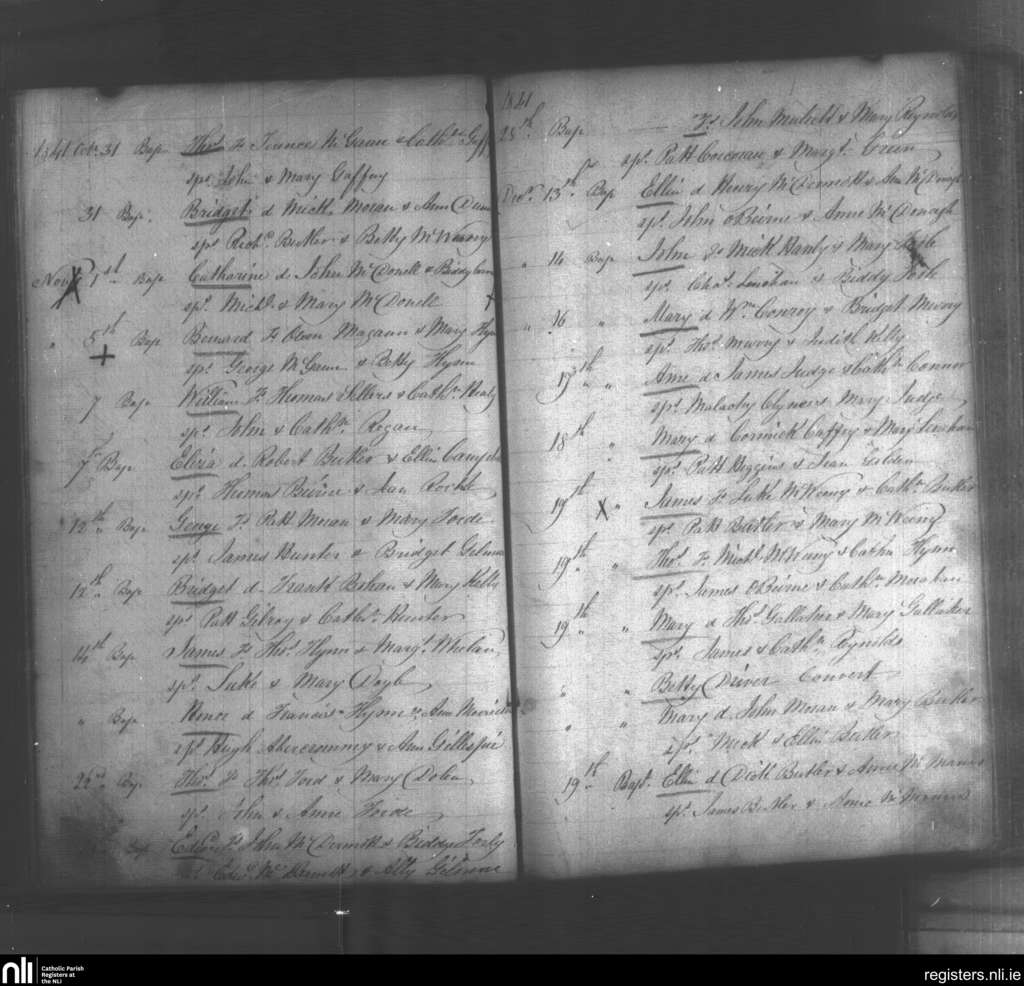 1841 Octr. 31 Bap. Thos. fs Terence McGaran & Cathn. Gaff
sps John & Mary Gaffny
31 Bap. Bridget d Mick Moran & Ann
sps Richd. Butler & Betty McWeeny
Novr 1st Bap Catharine d. John McDonell & Biddy
sps. Michl. & Mary McDonell
" 5th Bap Bernard fs Owen Magauran & Mary Flynn
sps. George McGauran & Betty Flynn
7 Bap. William fs Thomas Sellers & Cathn. Healy
sps. John & Cathn. Regan
7th Bap. Eliza d. Robert Butler & Ellin Campbe
sps. Thomas Beirne & Jan
12th Bap. George fs Patt Moran & Mary Forde
sps. James Hunter & Bridget
12th Bap Bridget d. Frank Bohan & Mary Kelly
sps Patt Gilroy & Cathn. Hunter
14th Bap James fs Thos. Flynn & Margt. Whelan
sps. Luke & Mary Doyle
" Bap. d Francis Flynn & Ann
sps Hugh Abercrommy & Ann Gillespie
22nd Bap. Thos. fs Thos. Ford & Mary Dolan
sps. John & Anne Forde
Bap Edwd. fs. John McDermott & Biddy
Edwd. McDermott & Ally
1841
28th Bap fs John & Mary Reynolds
sps. Patt Corcoran & Margt.
Decr. 13th Bap Ellin d Henry McDermott & Ann McDonagh
sps. John OBeirne & Anne McDonagh
" 14 Bap John fs Mick Hanly & Mary
sps. Chas. Linehan & Biddy
" 16 " Mary d Wm. Conroy & Bridget
sps. Thos. & Judith Kelly
17th " Anne d James Judge & Cathn. Connor
sps. Malachy & Mary Judge
18th " Mary d Cormick Caffry & Mary Linehan
sps. Patt Higgins & Jean
19th X " James fs Luke McWeeny & Cathn. Butler
sps Patt Butler & Mary McWeeny
19th " Thos. fs Michl. McWeeny & Cathn Flynn
sps. James OBeirne & Cathn.
19th " Mary d Thos. Gallaher & Mary Gallaher
sps. James & Cathn. Reynolds
" " Betty Driver Convert
" " Mary d John Moran & Mary Butler
sps. Mick & Ellin Butler
19th Bapt. Ellin d Dick Butler & Anne McManus
sps. James Butler & Anne McManus
nli Catholic Parish
Registers at
the NLI
registers.nli.ie